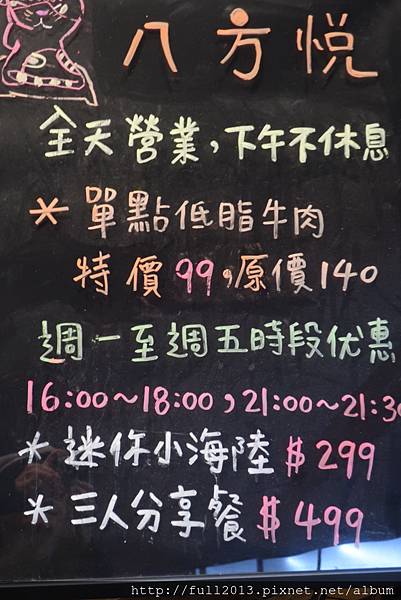 八方悅
全天營業,下午不休息
*單點低脂牛肉
特價99,原價140
週一至週五時段优惠
16:00~18:00,21:00~21:30
*迷你小海陸$299
*三人分享餐$499
http://full2013.pixnet.net/album